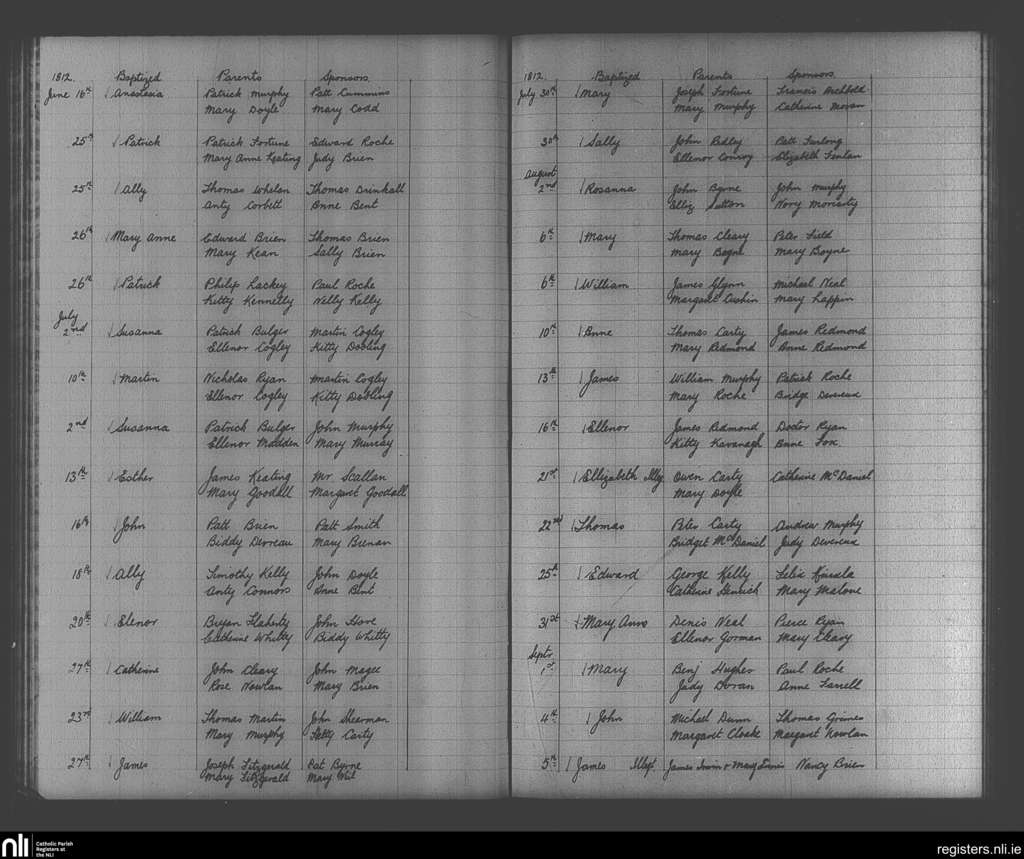 1812. Baptized Parents Sponsors
June 16th Anastasia Patrick Murphy Patt Cummins
Mary Doyle Mary Codd
25th Patrick Patrick Fortune Edward Roche
Mary Anne Keating Judy Brien
25th Ally Thomas Whelan Thomas Drinkall
Anty Corbett Anne Bent
26th Mary Anne Edward Brien Thomas Brien
Mary Kean Sally Brien
26th Patrick Philip Lackey Paul Roche
Kitty Kennelly Nelly Kelly
July
2nd Susanna Patrick Bulger Martin Cogley
Ellenor Cogley Kitty Dooling
10th Martin Nicholas Ryan Martin Cogley
Ellenor Cogley Kitty Dooling
2nd Susanna Patrick Bulger John Murphy
Ellenor Madden Mary Murray
13th Esther James Keating Mr Scallan
Mary Goodall Margaret Goodall
16th John Patt Brien Patt Smith
Biddy Devreau Mary Brenan
18th Ally Timothy Kelly John Doyle
Anty Connors Anne Bent
20th Elenor Bryan Flaherty John Hore
Catherine Whitty Biddy Whitty
27th Catherine John Cleary John Magee
Rose Nowlan Mary Brien
23rd William Thomas Martin John Shearman
Mary Murphy Catty Carty
27th James Joseph Fitzgerald Pat Byrne
Mary Fitzgerald Mary
1812. Baptized Parents Sponsors
July 30th Mary Joseph Fortune Francis Archbold
Mary Murphy Catherine Moran
30th Sally John Patt Furlong
Ellenor Conroy Elizabeth Fenlan
August
2nd Rosanna John Byrne John Murphy
Elliz Sutton Nory Moriarty
6th Mary Thomas Cleary Peter Field
Mary Mary Boyne
6th William James Glynn Michael Neal
Margaret Cushin Mary Lappin
10th Anne Thomas Carty James Redmond
Mary Redmond Anne Redmond
13th James William Murphy Patrick Roche
Mary Roche Bridge Devereux
16th Ellenor James Redmond Doctor Ryan
Kitty Kavanagh Anne Fox
21st Ellizabeth Illeg Owen Carty Catherine McDaniel
Mary Doyle
22nd Thomas Peter Carty Andrew Murphy
Bridget McDaniel Judy Devereux
25th Edward George Kelly Felix Kinsela
Catherine Mary Malone
31st Mary Anne Denis Neal Pierce Ryan
Ellenor Gorman Mary Cleary
Septr
1st Mary Benj Hughes Paul Roche
Judy Doran Anne Farrell
4th John Michael Dunn Thomas Grimes
Margaret Cloake Margaret Nowlan
5th James Illegt. James Irwin & Mary Ennis Nancy Brien
nli Catholic Parish
Registers at
the NLI
registers.nli.ie